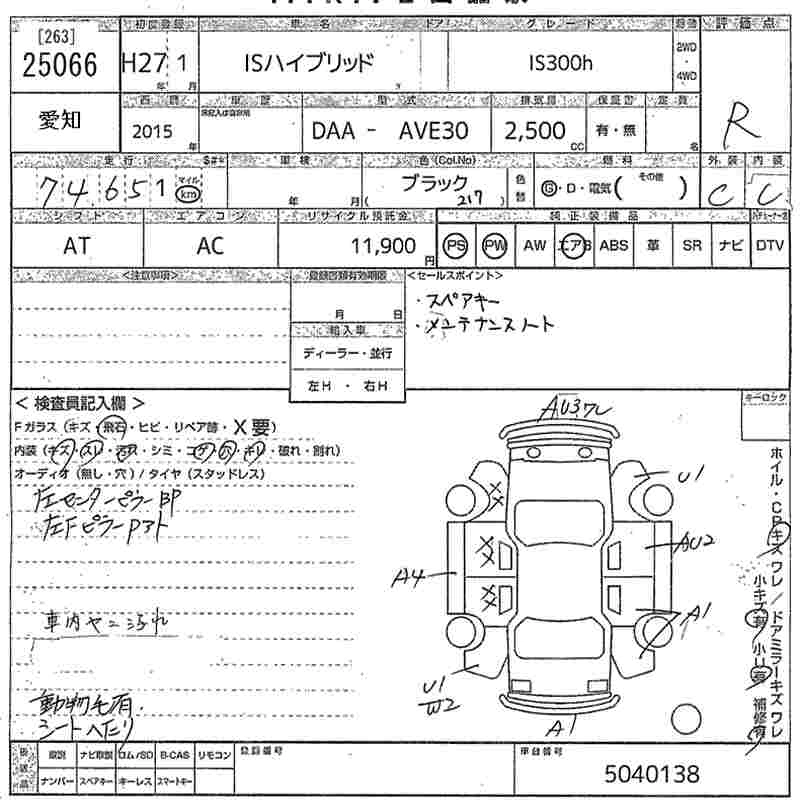 [263]
25066
初度登録 車名 ドア グレード 評価点
H27年 1月 ISハイブリッド IS300h 2WD・4WD
愛知
西暦 車歴 型式 排気量 保証書 定員
2015年 DAA - AVE30 2,500CC 有・無 名 R
走行 車検 色(Col.No) 燃料 外装 内装
74,651 マイル km 年 月 ブラック (217) 色替 G・D・電気( その他 ) C C
シフト エアコン リサイクル預託金 純正装備品
AT AC 11,900円 PS PW AW エアB ABS 革 SR ナビ DTV
<注意事項> 登録書類有効期限 <セールスポイント>
月 日
・スペアキー
・メンテナンスノート
輸入車
ディーラー・並行
左H ・ 右H
< 検査員記入欄 >
Fガラス (キズ・飛石・ヒビ・リペア跡・X要)
内装 (キズ・スレ・汚ス・シミ・コゲ・穴・キレ・破れ・割れ)
オーディオ (無し・穴) / タイヤ (スタッドレス)
左センターピラーBP
左FピラーPアト
車内ヤニ汚れ
動物毛有.
シートヘたり
キーロック
AU3ワレ
U1
XX
XX
XX
AU2
A4
A1
U1
W2
A1
ホイル・CPキズ ワレ / ドアミラーキズ ワレ
小キズ有 小U有 補修有
取説 ナビ取説 ロム/SD B-CAS リモコン 登録番号 車台番号
ナンバー スペアキー キーレス スマートキー
5040138